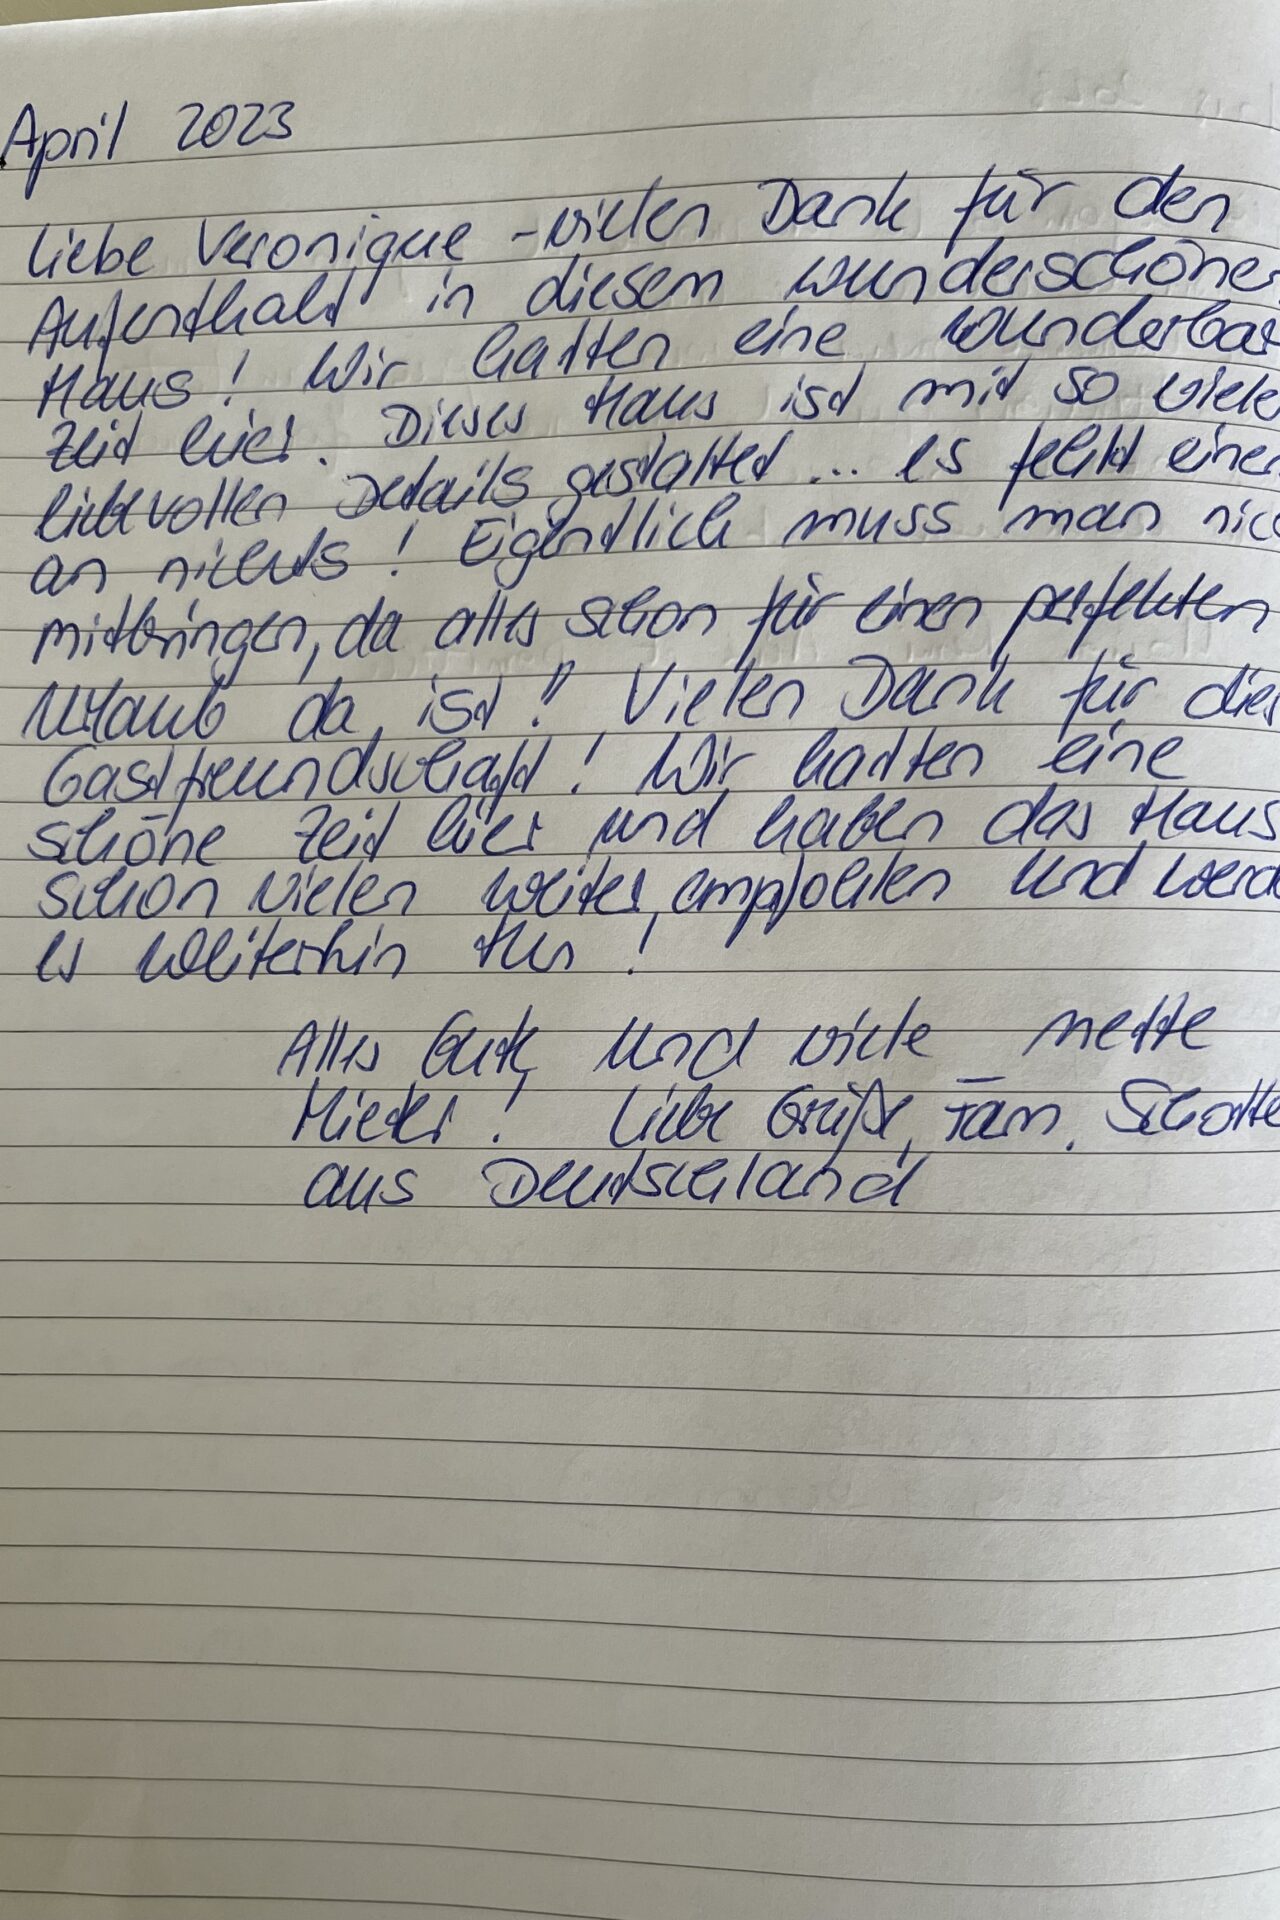 April 2023
Liebe Veronique - vielen Dank für den
Aufenthalt in diesem wunderschönen
Haus! Wir hatten eine wunderbar
Zeit hier. Dieses Haus ist mit so viele
liebevollen Details gestaltet... es fehlt einen
an nichts! Eigentlich muss man nic
mitbringen, da alles schon für einen perfekten
Urlaub da ist!! Vielen Dank für die
Gastfreundschaft! Wir hatten eine
schöne Zeit hier und haben das Haus
schon vielen weiter empfohlen und werd
es weiterhin tun!
Alles Gute und viele nette
Mieter! Liebe Grüße, Fam. Schotte
aus Deutschland